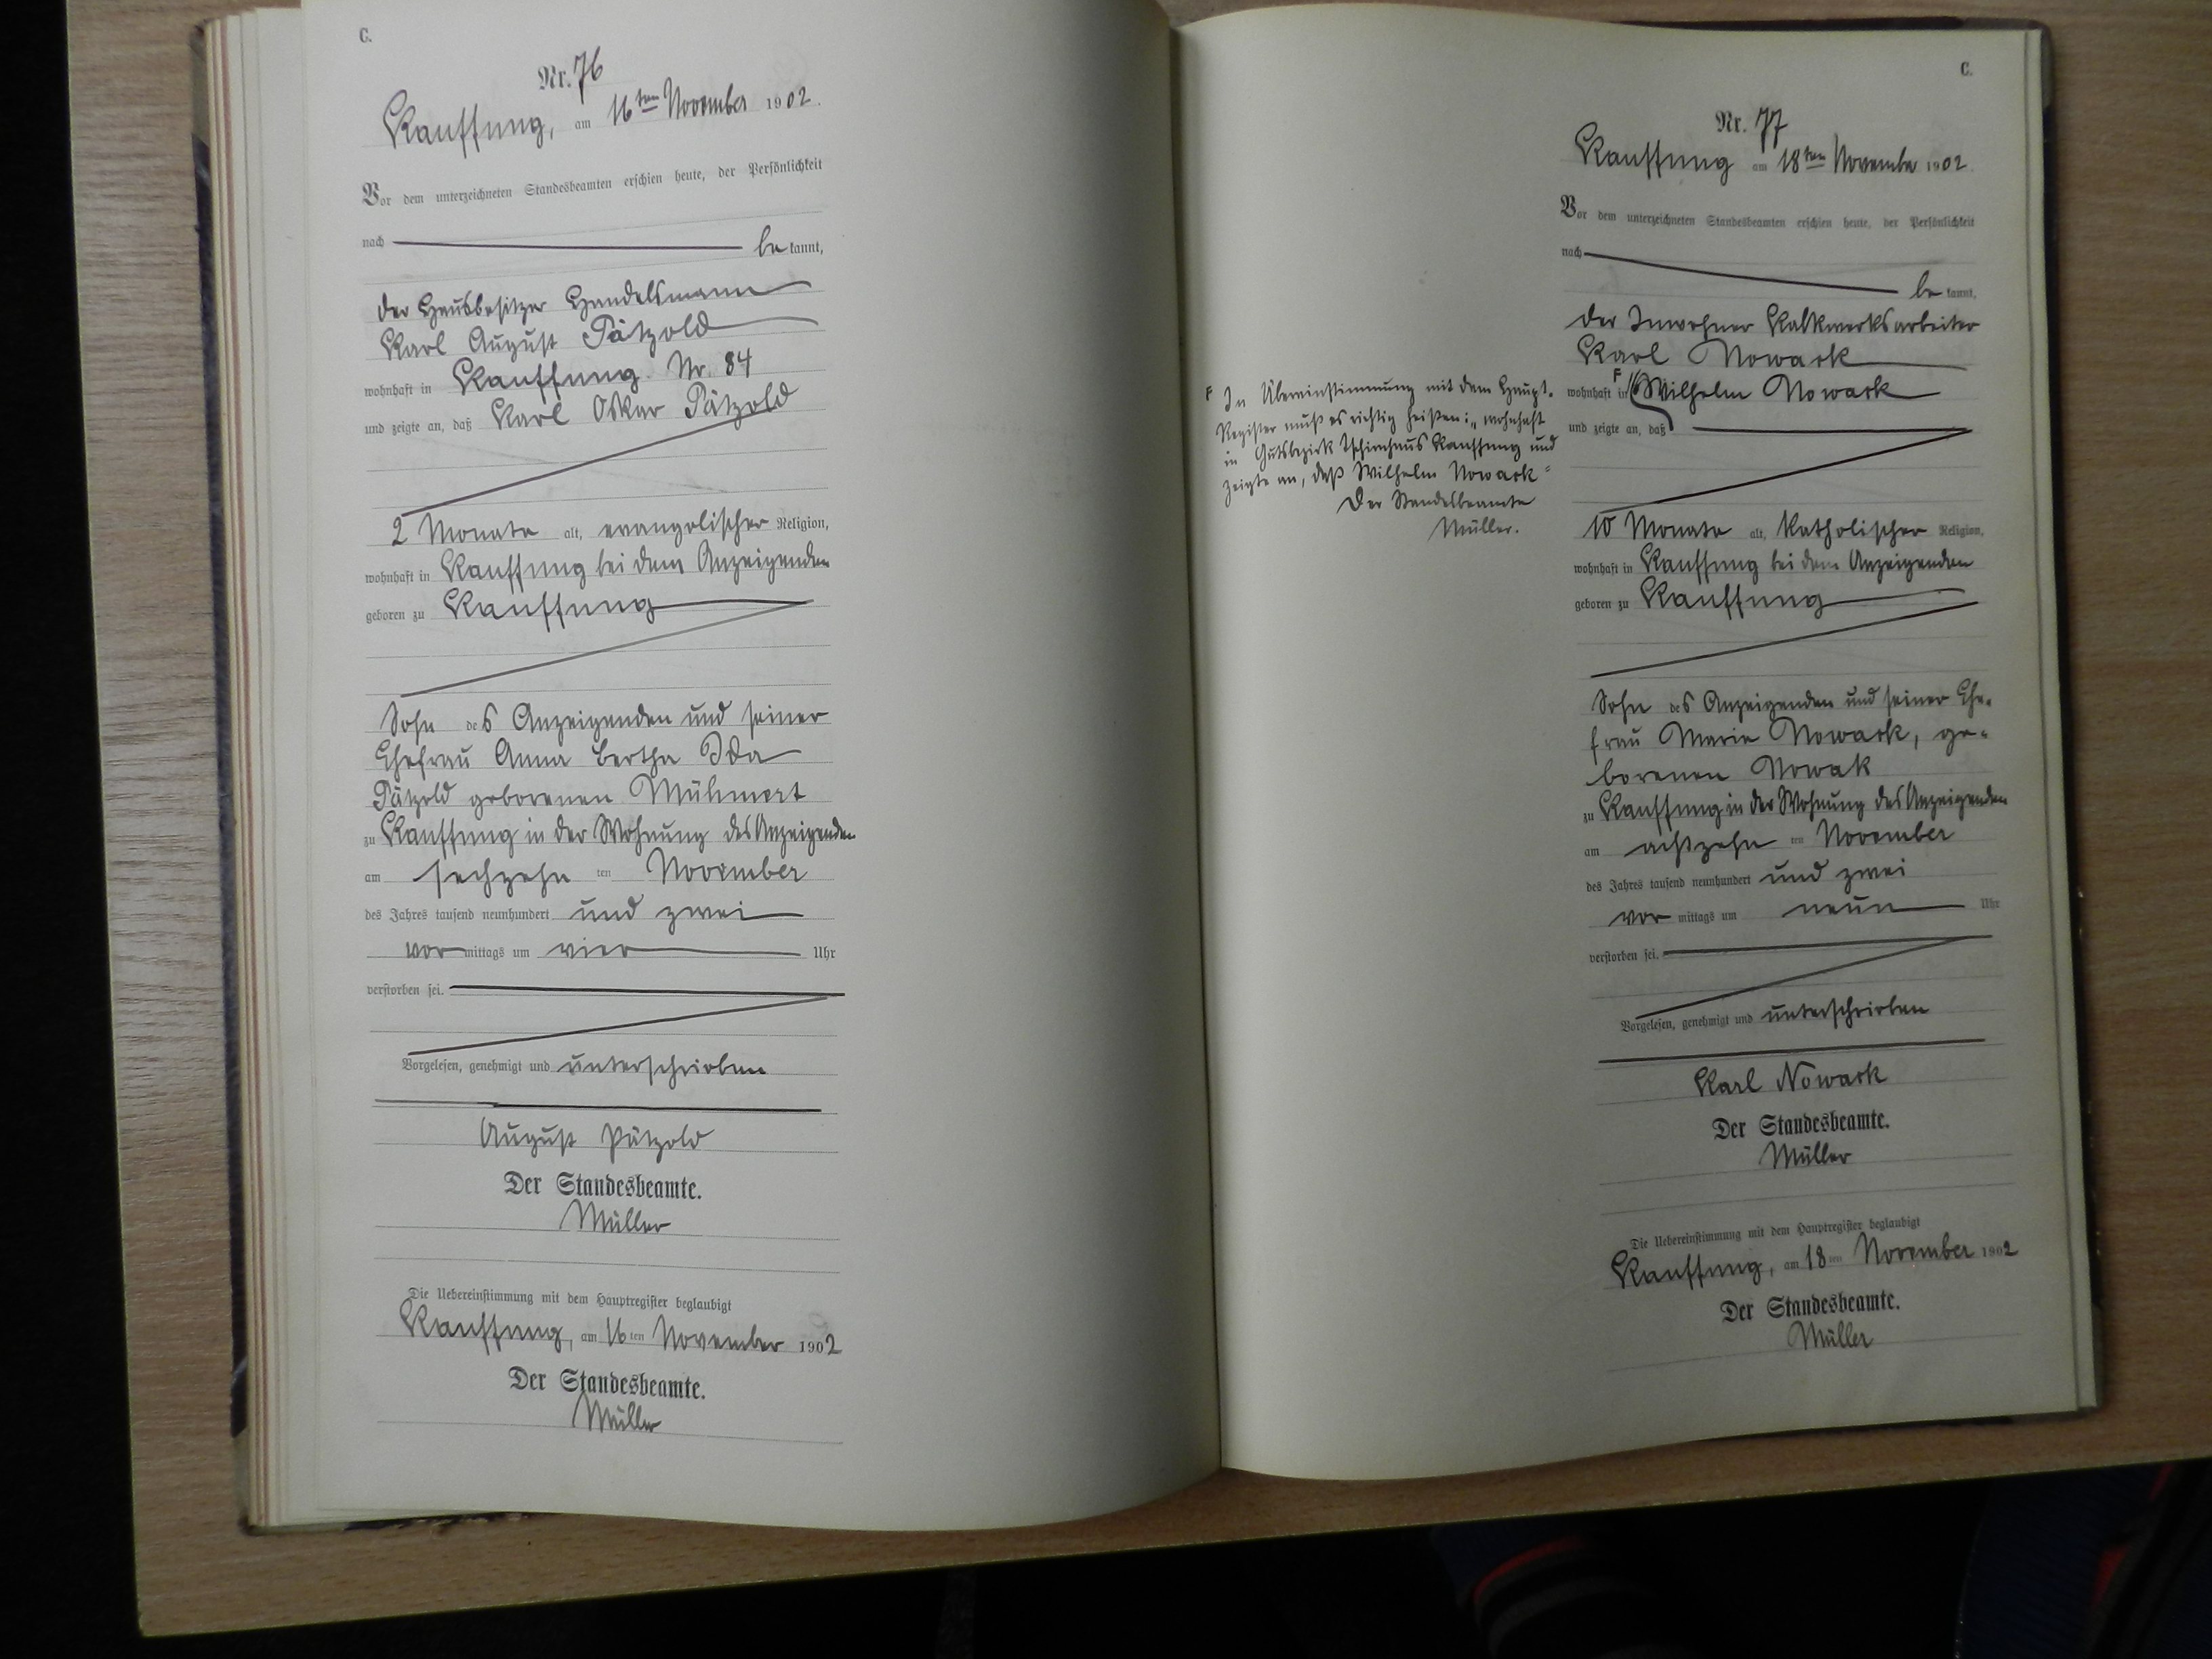 C.
Nr. 76
Kauffung, am 16ten November 1902.
Vor dem unterzeichneten Standesbeamten erschien heute, der Persönlichkeit
nach be kannt,
der Hausbesitzer Handelsmann
Karl August Pätzold
wohnhaft in Kauffung Nr. 84
und zeigte an, daß Karl Oskar Pätzold
2 Monate alt, evangelischer Religion,
wohnhaft in Kauffung bei dem Anzeigenden
geboren zu Kauffung
Sohn des Anzeigenden und seiner
Ehefrau Anna Bertha Ida
Pätzold geborenen
zu Kauffung in der Wohnung des Anzeigenden
am sechzehn ten November
des Jahres tausend neunhundert und zwei
vor mittags um vier Uhr
verstorben sei.
Vorgelesen, genehmigt und unterschrieben
August Pätzold
Der Standesbeamte.
Müller
Die Uebereinstimmung mit dem Hauptregister beglaubigt
Kauffung, am 16ten November 1902
Der Standesbeamte.
Müller
C.
Nr. 77
Kauffung am 18ten November 1902.
Vor dem unterzeichneten Standesbeamten erschien heute, der Persönlichkeit
nach be kannt,
der Inwohner Kalkwerksarbeiter
Karl Nowack
wohnhaft in F Wilhelm Nowack
und zeigte an, daß
F In Übereinstimmung mit dem Haupt-
Register muß es richtig heißen: „wohnhaft
in Gutsbezirk Tschirnhaus Kauffung und
zeigte an, daß Wilhelm Nowack"
Der Standesbeamte
Müller.
10 Monate alt, katholischer Religion,
wohnhaft in Kauffung bei dem Anzeigenden
geboren zu Kauffung
Sohn des Anzeigenden und seiner Ehe-
frau Marie Nowack, ge-
borenen Nowak
zu Kauffung in der Wohnung des Anzeigenden
am achtzehn ten November
des Jahres tausend neunhundert und zwei
vor mittags um neun Uhr
verstorben sei.
Vorgelesen, genehmigt und unterschrieben
Karl Nowack
Der Standesbeamte.
Müller
Die Uebereinstimmung mit dem Hauptregister beglaubigt
Kauffung, am 18ten November 1902
Der Standesbeamte.
Müller